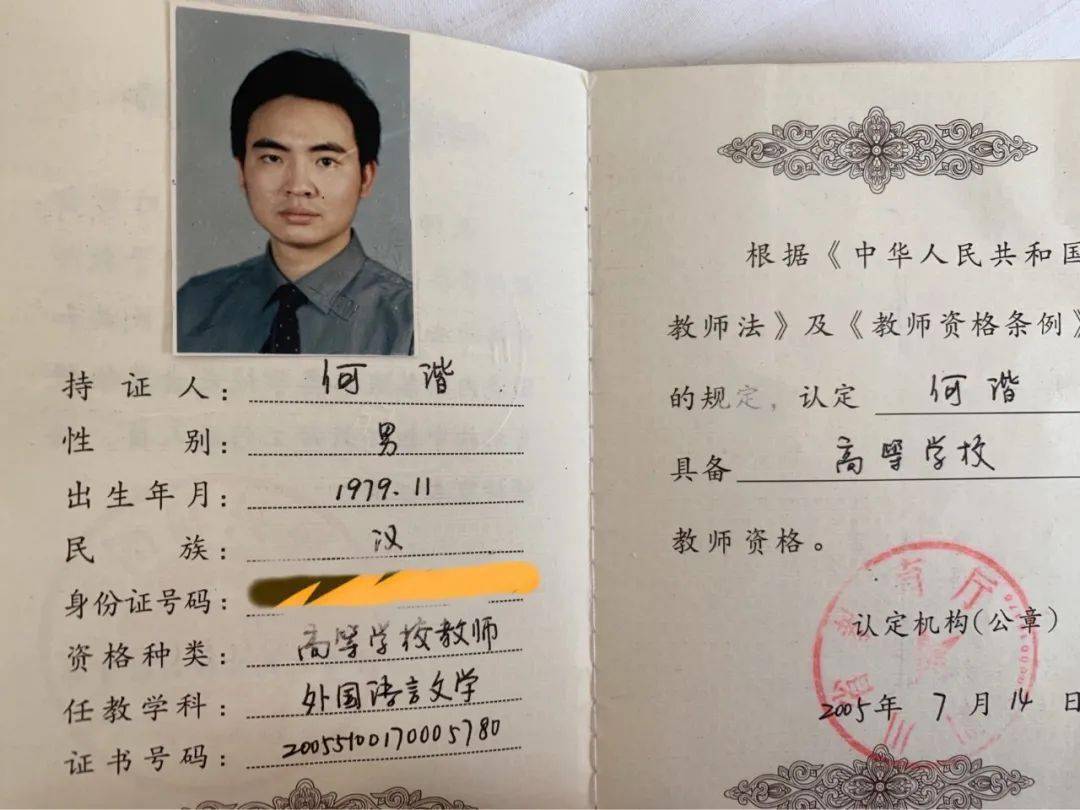 持证人：何谐
性别：男
出生年月：1979.11
民族：汉
身份证号码：
资格种类：高等学校教师
任教学科：外国语言文学
证书号码：20055100170005780
根据《中华人民共和国
教师法》及《教师资格条例》
的规定，认定 何谐
具备 高等学校
教师资格。
认定机构(公章)
2005年 7月 14日